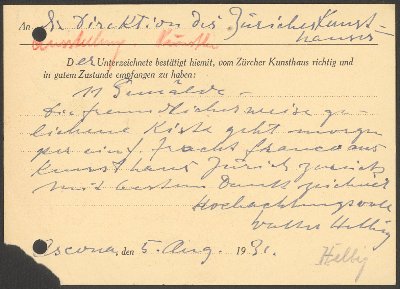 An die Direktion des Zürcher Kunst-
hauses
Ausstellung Künstler
Der Unterzeichnete bestätigt hiemit, vom Zürcher Kunsthaus richtig und
in gutem Zustande empfangen zu haben:
11 Gemälde.
Die freundlicherweise ge-
liehene Kiste geht morgen
per einf. Fracht franco ans
Kunsthaus Zürich zurück
mit bestem Dank zeichnet
Hochachtungsvoll
Walter Helbig
Ascona, den 5. Aug. 1931.
Helbig